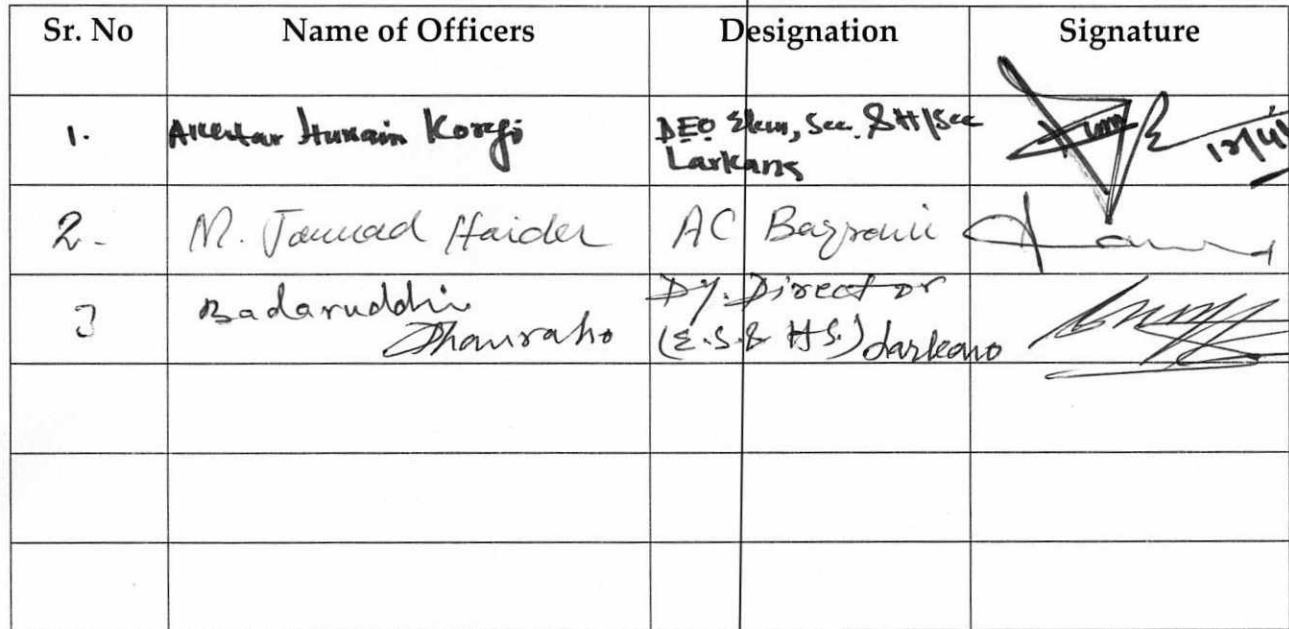 Sr. No Name of Officers Designation Signature
1. Akhtar Hussain Korejo DEO Elem, Sec. & H/Sec
Larkana
2. M. Jawad Haider AC
3 Badaruddin Dy. Director
Dhamraho (E.S. & HS.) Larkano